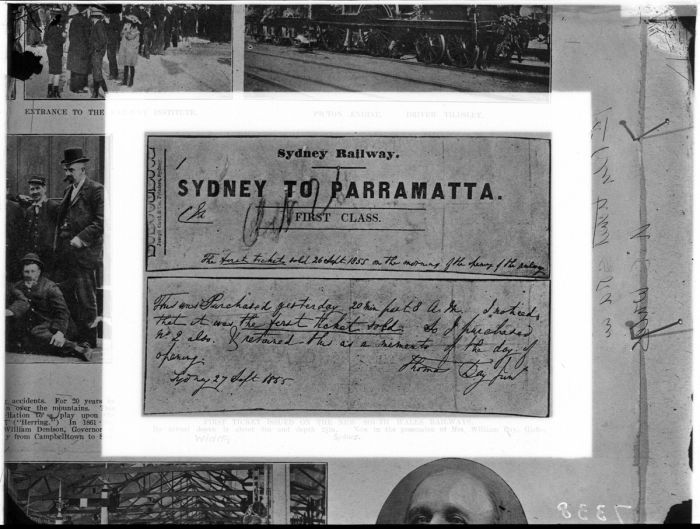 ENTRANCE TO THE RAILWAY INSTITUTE.
PICTON ENGINE. DRIVER TILDSLEY.
Sydney Railway.
SYDNEY TO PARRAMATTA.
FIRST CLASS.
The first ticket sold 26 Sept 1855 on the morning of the opening of the railway
This was Purchased yesterday 20 min past 8 A.M. I noticed
that it was the first ticket sold. So I purchased
No 2 also. & retained this as a memento of the day of
opening. Thomas Day Junr
Sydney 27 Sept 1855
accidents. For 20 years
over the mountains.
play upon
("Herring.") In 1861
William Denison, Governor
from Campbelltown to
FIRST TICKET ISSUED ON THE NEW SOUTH WALES RAILWAYS.
Now in the possession of Mrs. William Day,
Width
7338